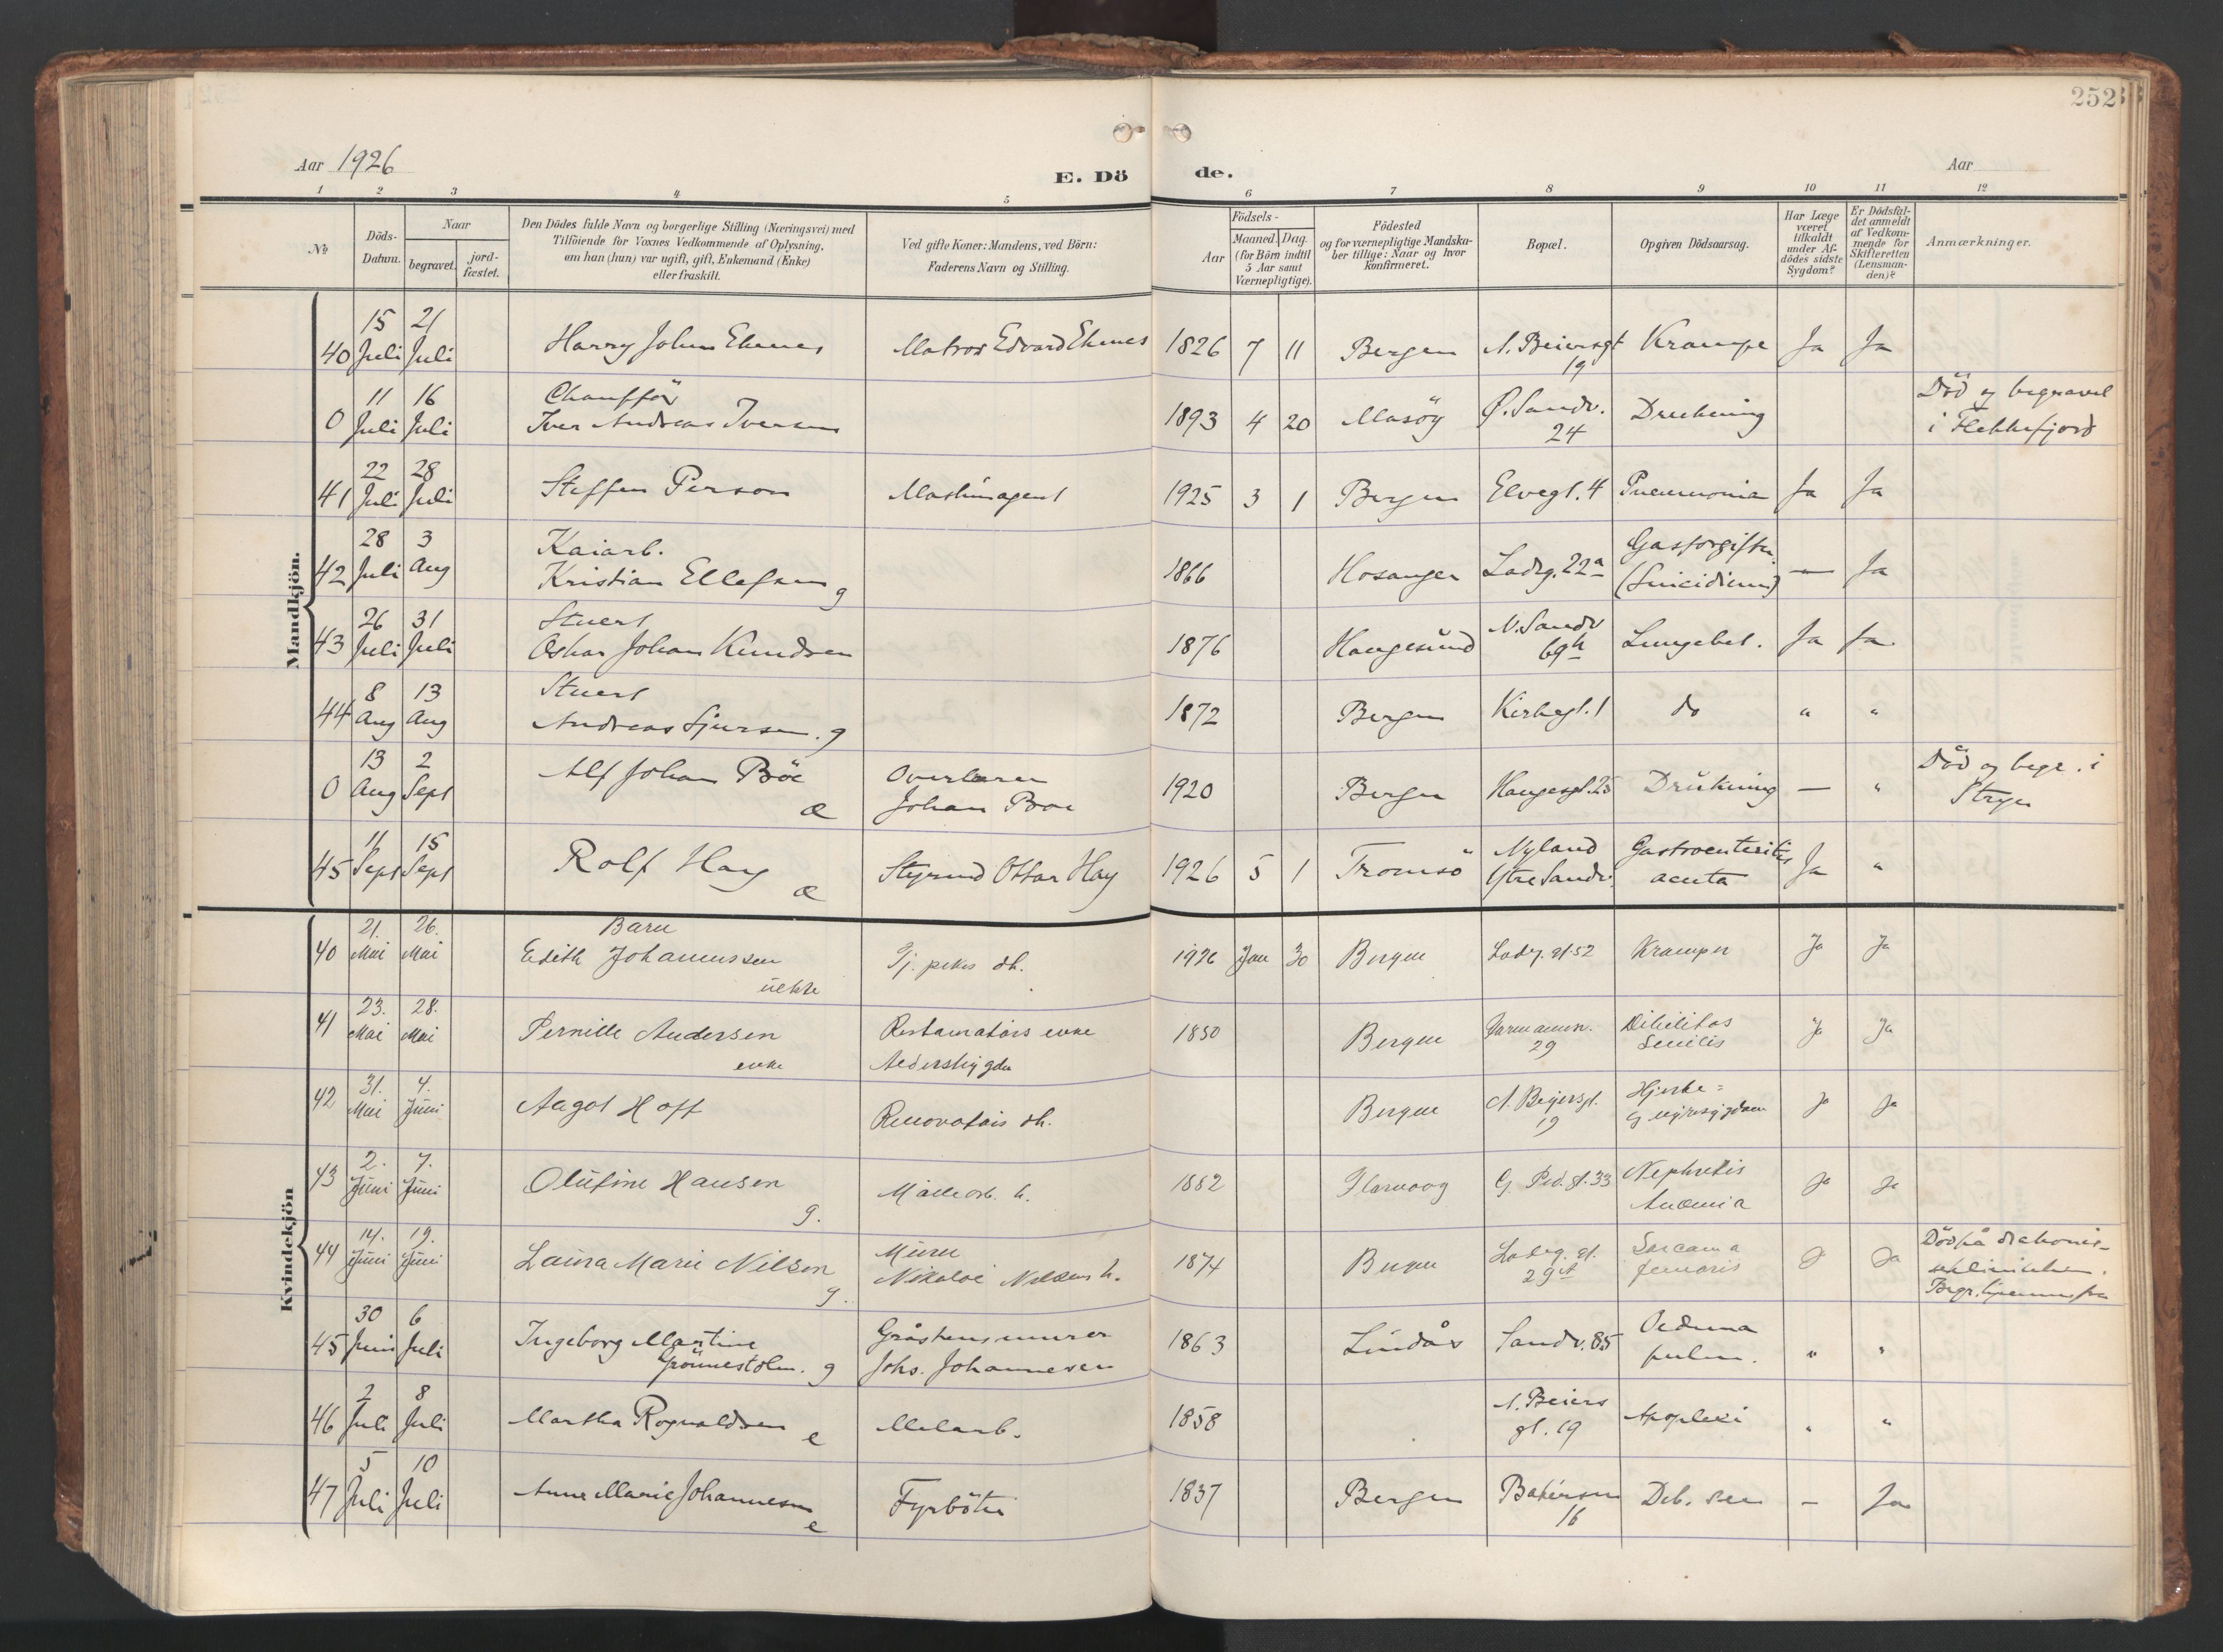 252
Aar 1926
E. Dö
de.
Aar
1 2 3 4 5 6 7 8 9 10 11 12
№
Döds-
Datum.
Naar
begravet.
jord-
fæstet.
Den Dödes fulde Navn og borgerlige Stilling (Næringsvei) med
Tilföiende for Voxnes Vedkommende af Oplysning,
om han (hun) var ugift, gift, Enkemand (Enke)
eller fraskilt.
Ved gifte Koner: Mandens, ved Börn:
Faderens Navn og Stilling.
Födsels-
Aar
Maaned.
Dag.
(for Börn indtil
5 Aar samt
Værnepligtige).
Födested
og for værnepligtige Mandska-
ber tillige: Naar og hvor
konfirmeret.
Bopæl.
Opgiven Dödsaarsag.
Har Læge
været
tilkaldt
under Af-
dödes sidste
Sygdom?
Er Dödsfal-
det anmeldt
af Vedkom-
mende for
Skifteretten
(Lensman-
den)?
Anmærkninger.
Mandkjön.
15 21
40 Juli Juli Harry Johan Matros Edvard 1826 7 11 Bergen N. Beiersgt Krampe Ja Ja
19
11 16 Chaufför Död og begravet
0 Juli Juli Iver Andreas Iversen 1893 4 20 Masöy Ø. Sandv. Drukning i Flekkefjord
24
22 28
41 Juli Juli Steffen Person Maskinagent 1925 3 1 Bergen Elvegt. 4 Pneumonia Ja Ja
28 3 Kaiarb. Gasforgiftn.
42 Juli Aug Kristian Ellefsen g 1866 Hosanger Ladeg. 22a (Suicidium) — Ja
26 31 Stuert N. Sandv
43 Juli Juli Oskar Johan Knudsen 1876 Haugesund 69b Lungebet. Ja Ja
8 13 Stuert
44 Aug Aug Andreas Sjursen. g 1872 Bergen Kirkegt. 1 do " "
13 2 Overlærer Död og begr. i
0 Aug Sept Alf Johan Böe æ Johan Böe 1920 Bergen Haugesgt. 25 Drukning — " Stryn
11 15 Nyland Gastroenteritis
45 Sept Sept Rolf Hay æ Styrmd Ottar Hay 1926 5 1 Tromsö Ytre Sandv. acuta Ja "
Kvindekjön
21. 26. Barn
40 Mai Mai Edith Johannessen Tj. pikes dh. 1926 Jan 30 Bergen Ladeg. gt 52 Kramper Ja Ja
uekte
23. 28.
41 Mai Mai Pernille Andersen Restauratörs enke 1850 Bergen Debilitas Ja Ja
enke 29 Senilis
31. 4.
42 Mai Juni Aagot Hoff Renovatörs dh. Bergen N. Beyersgt. Hjerte=
19 og nyresygdom Ja Ja
2. 7.
43 Juni Juni Olufine Hansen h. 1882 G. 33 Nephritis Ja Ja
g. Anæmia
14. 19. Murer Död på diakonis-
44 Juni Juni Laura Marie Nilsen Nikolai Nilsens h. 1874 Bergen Ladeg. gt. Sarcoma Ja Ja
g. 29A femoris
Begr. hjemmefra
30 6 Gråstensmurer Oedema
45 Juni Juli Ingeborg Martine Johs. Johannesen 1863 Lindås Sandv. 85 pulm. " "
g
2 8 N. Beiers
46 Juli Juli Martha Rognaldsen e 1858 gt. 19 Apoplexi " "
5 10
47 Juli Juli Anne Marie Johannesen e Fyrböter 1837 Bergen Deb. sen — Ja
16